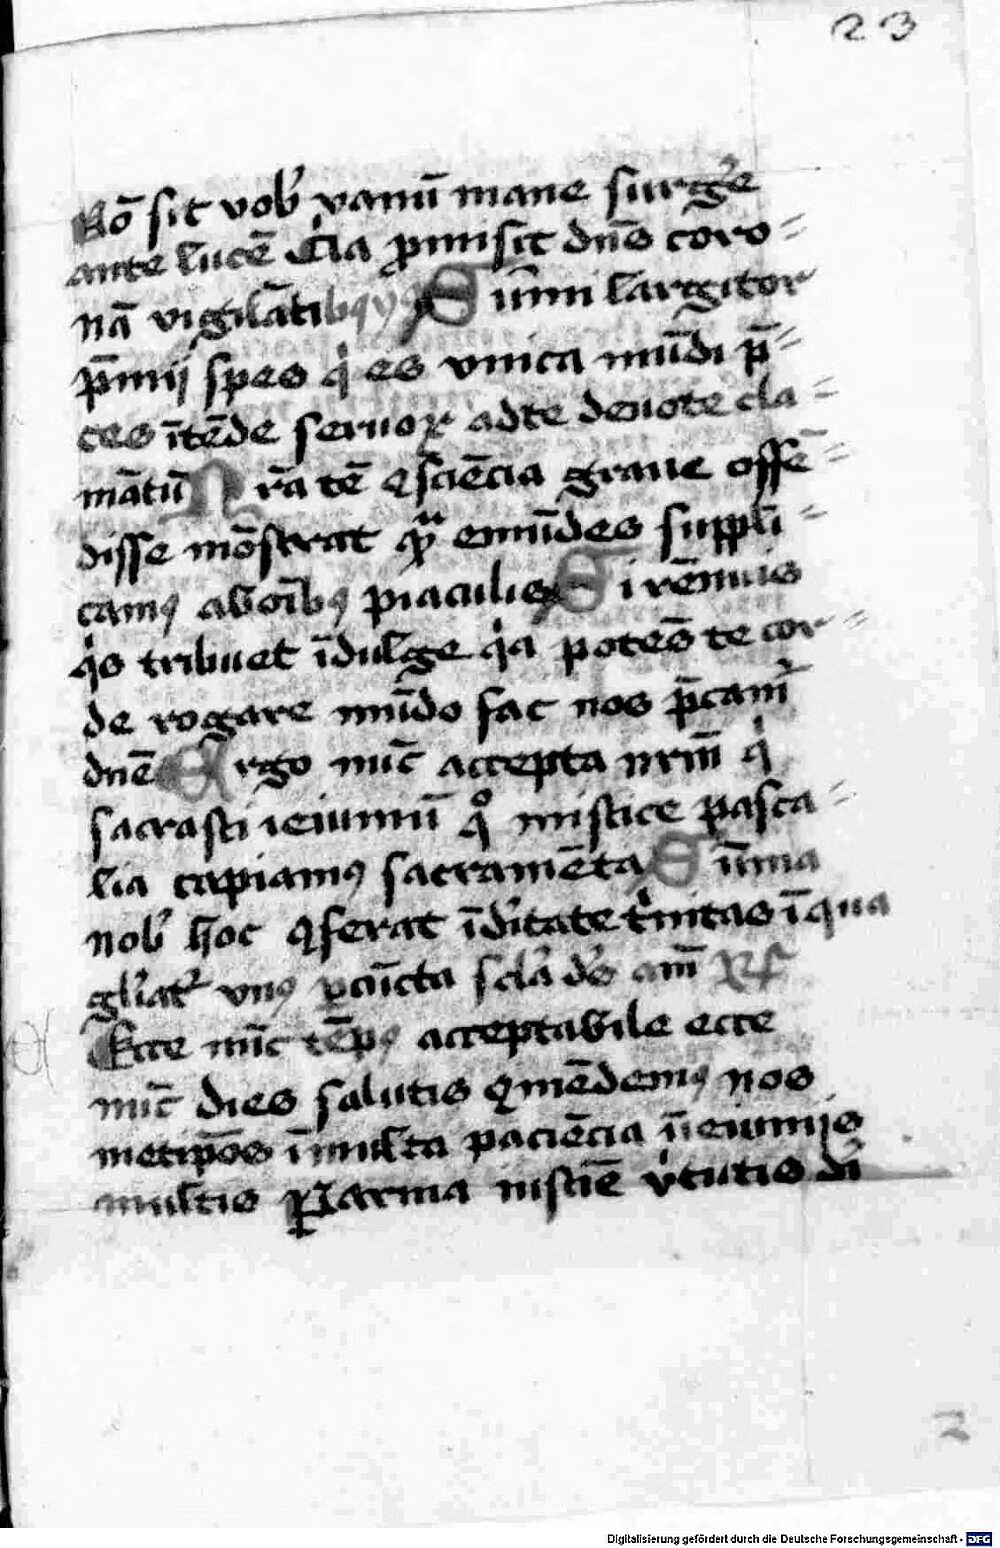 23
Nō sit vob᷒ vanū mane surg᷒e
ante lucē Q᷒ia ꝓmisit dn̄s coro=
nā vigilātibꝰ Sūmi largitor
p̄mij spes q̇ es vnica mūdi p̄=
ces ītēde seruoꝝ adte deuote cla=
mātiū Nr̄a tē ꝯsciēcia graue offē=
disse mōstrat qᷓ emūdes suppli=
camꝰ aboībꝰ piaculis Si rēnuis
q̇s tribuet īdulge q̇a potes te cor=
de rogare mūdo fac nos p̄cam᷒
dn̄e Ergo nūc accepta nr̄m q̇
sacrasti ieiuniū qͦ mistice pasca=
lia capiamꝰ sacramēta Sūma
nob᷒ hoc ꝯferat īd᷒itate t᷒nitas īqua
gl᷒iat᷒ vnꝰ ꝑcūcta scl᷒a d᷒s am̄ Rſ
Ecce nūc tēpꝰ acceptabile ecce
nūc dies salutis ꝯmēdemꝰ nos
metip̄os īmulta paciēcia īieiunijs
multis ꝑ arma iusticie v᷒tutis di᷒
2
Digitalisierung gefördert durch die Deutsche Forschungsgemeinschaft - DFG